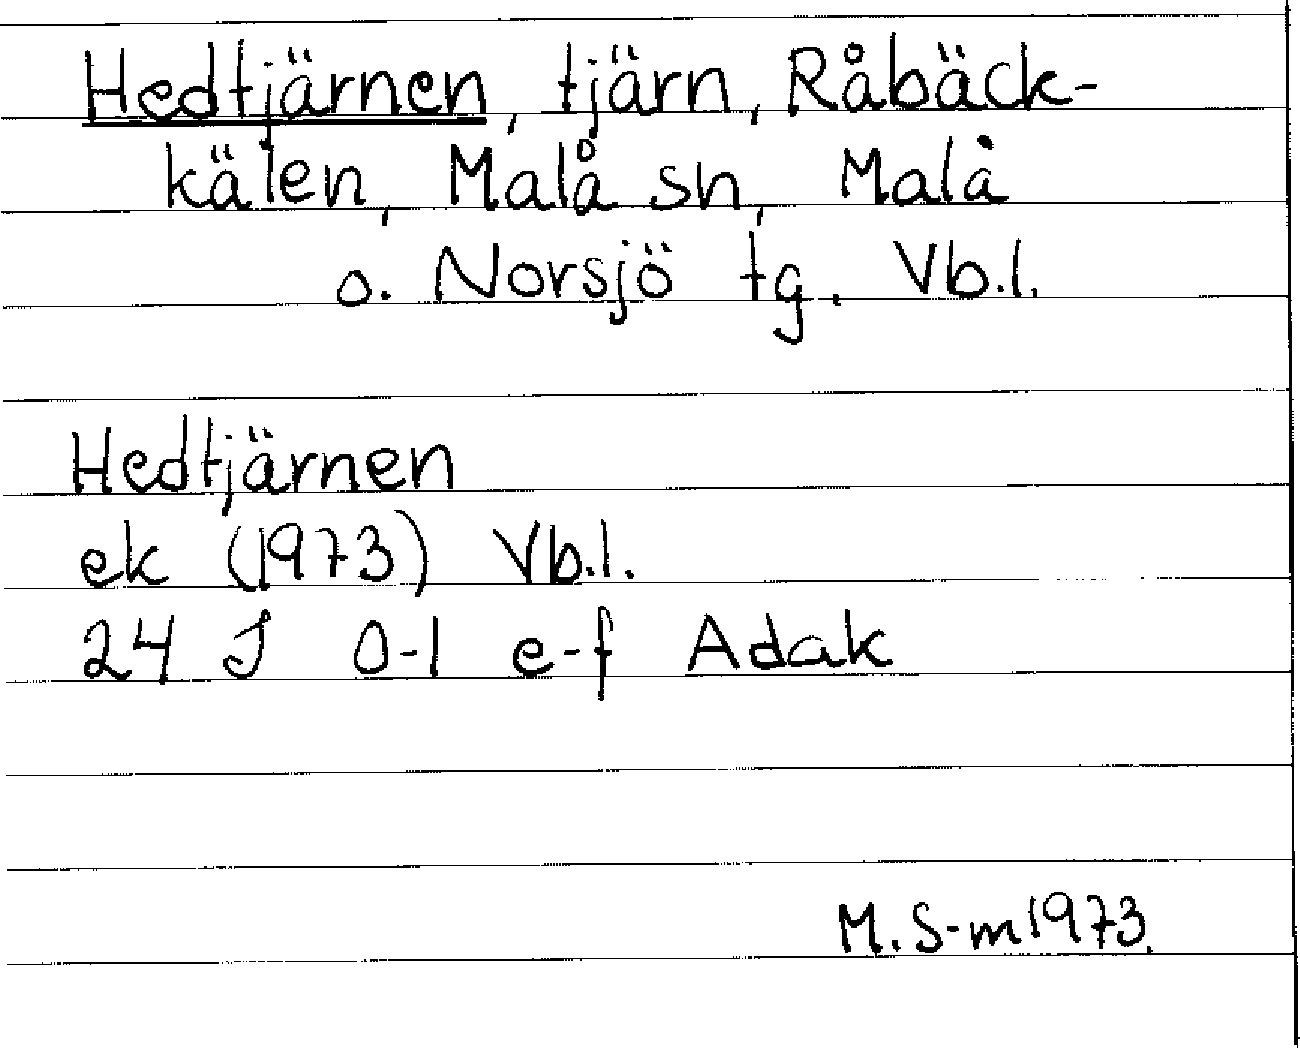 Hedtjärnen, tjärn, Råbäck-
kälen, Malå sn, Malå
o. Norsjö tg. Vb.l.
Hedtjärnen
ek (1973) Vb.l.
24 J 0-1 e-f Adak
M. S-m 1973.